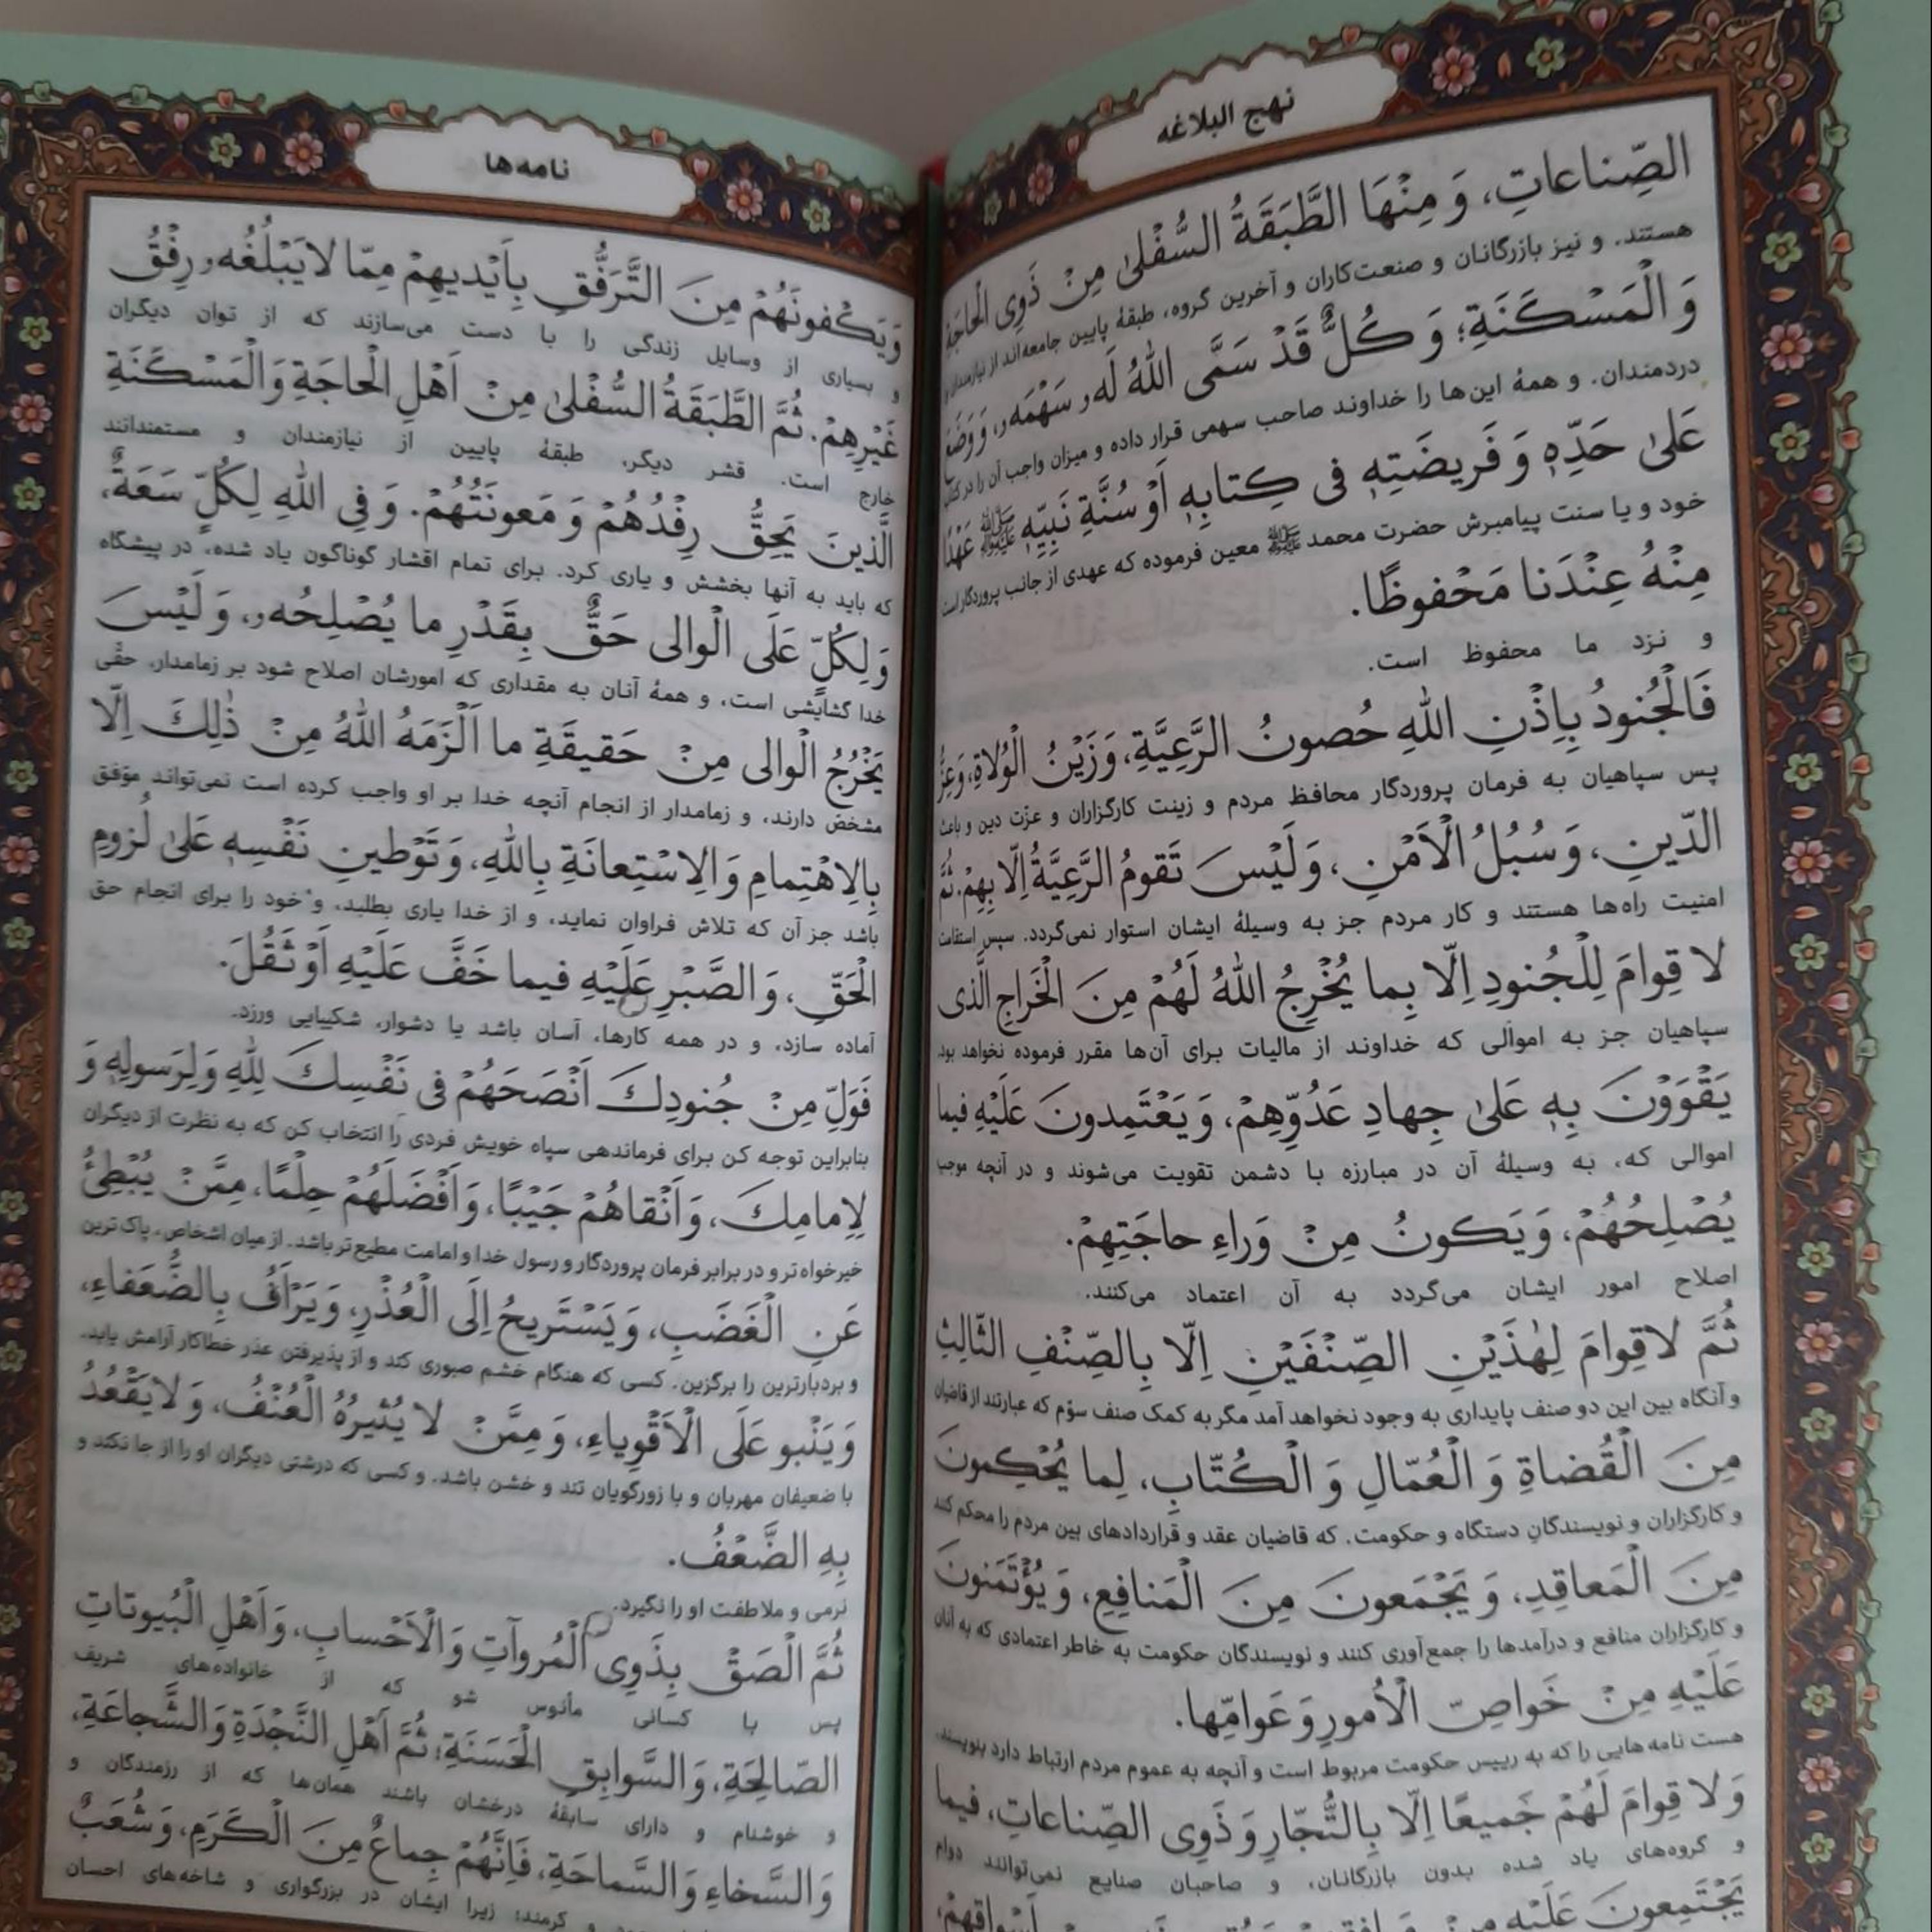 نهج البلاغه
الصِّناعاتِ، وَ مِنْهَا الطَّبَقَةُ السُّفْلىٰ مِنْ ذَوِی الْحاجَةِ
هستند. و نیز بازرگانان و صنعت‌کاران و آخرین گروه، طبقهٔ پایین جامعه‌اند از نیازمندان و
وَ الْمَسْكَنَةِ؛ وَ كُلٌّ قَدْ سَمَّى اللهُ لَه سَهْمَه، وَ وَضَعَ
دردمندان. و همهٔ این‌ها را خداوند صاحب سهمی قرار داده و میزان واجب آن را در کتاب
عَلىٰ حَدِّهٖ وَ فَريضَتِهٖ فی كِتابِهٖ اَوْ سُنَّةِ نَبِیِّهٖ ﷺ عَهْدًا
خود و یا سنت پیامبرش حضرت محمد ﷺ معین فرموده که عهدی از جانب پروردگار است
مِنْهُ عِنْدَنا مَحْفوظًا.
و نزد ما محفوظ است.
فَالْجُنودُ بِاِذْنِ اللهِ حُصونُ الرَّعِیَّةِ، وَ زَیْنُ الْوُلاةِ، وَ عِزُّ
پس سپاهیان به فرمان پروردگار محافظ مردم و زینت کارگزاران و عزّت دین و باعث
الدّینِ، وَ سُبُلُ الْاَمْنِ، وَ لَیْسَ تَقومُ الرَّعِیَّةُ اِلّا بِهِمْ. ثُمَّ
امنیت راه‌ها هستند و کار مردم جز به وسیلهٔ ایشان استوار نمی‌گردد. سپس استقامت
لا قِوامَ لِلْجُنودِ اِلّا بِما یُخْرِجُ اللهُ لَهُمْ مِنَ الْخَراجِ الَّذی
سپاهیان جز به اموالی که خداوند از مالیات برای آن‌ها مقرر فرموده نخواهد بود.
یَقْوَوْنَ بِهٖ عَلىٰ جِهادِ عَدُوِّهِمْ، وَ یَعْتَمِدونَ عَلَیْهِ فیما
اموالی که، به وسیلهٔ آن در مبارزه با دشمن تقویت می‌شوند و در آنچه موجب
یُصْلِحُهُمْ، وَ یَكونُ مِنْ وَراءِ حاجَتِهِمْ.
اصلاح امور ایشان می‌گردد به آن اعتماد می‌کنند.
ثُمَّ لا قِوامَ لِهٰذَیْنِ الصِّنْفَیْنِ اِلّا بِالصِّنْفِ الثّالِثِ
و آنگاه بین این دو صنف پایداری به وجود نخواهد آمد مگر به کمک صنف سوّم که عبارتند از قاضیان
مِنَ الْقُضاةِ وَ الْعُمّالِ وَ الْكُتّابِ، لِما یُحْكِمونَ
و کارگزاران و نویسندگانِ دستگاه و حکومت. که قاضیان عقد و قراردادهای بین مردم را محکم کنند
مِنَ الْمَعاقِدِ، وَ یَجْمَعونَ مِنَ الْمَنافِعِ، وَ یُؤْتَمَنونَ
و کارگزاران منافع و درآمدها را جمع‌آوری کنند و نویسندگان حکومت به خاطر اعتمادی که به آنان
عَلَیْهِ مِنْ خَواصِّ الْاُمورِ وَ عَوامِّها.
هست نامه‌هایی را که به رییس حکومت مربوط است و آنچه به عموم مردم ارتباط دارد بنویسند.
وَ لا قِوامَ لَهُمْ جَمیعًا اِلّا بِالتُّجّارِ وَ ذَوِی الصِّناعاتِ، فیما
و گروه‌های یاد شده بدون بازرگانان، و صاحبان صنایع نمی‌توانند دوام
یَجْتَمِعونَ عَلَیْهِ مِنْ أَسْواقِهِمْ،
نامه‌ها
وَ یَكْفونَهُمْ مِنَ التَّرَفُّقِ بِاَیْدیهِمْ مِمّا لا یَبْلُغُه رِفْقُ
و بسیاری از وسایل زندگی را با دست می‌سازند که از توان دیگران
غَیْرِهِمْ. ثُمَّ الطَّبَقَةُ السُّفْلىٰ مِنْ اَهْلِ الْحاجَةِ وَ الْمَسْكَنَةِ
خارج است. قشر دیگر، طبقهٔ پایین از نیازمندان و مستمندانند
الَّذینَ یَحِقُّ رِفْدُهُمْ وَ مَعونَتُهُمْ. وَ فِی اللهِ لِكُلٍّ سَعَةٌ،
که باید به آنها بخشش و یاری کرد. برای تمام اقشار گوناگون یاد شده، در پیشگاه
وَ لِكُلٍّ عَلَى الْوالی حَقٌّ بِقَدْرِ ما یُصْلِحُه، وَ لَیْسَ
خدا گشایشی است، و همهٔ آنان به مقداری که امورشان اصلاح شود بر زمامدار، حقّی
یَخْرُجُ الْوالی مِنْ حَقیقَةِ ما اَلْزَمَهُ اللهُ مِنْ ذٰلِكَ اِلّا
مشخص دارند، و زمامدار از انجام آنچه خدا بر او واجب کرده است نمی‌تواند موّفق
بِالِاهْتِمامِ وَ الِاسْتِعانَةِ بِاللهِ، وَ تَوْطینِ نَفْسِهٖ عَلىٰ لُزومِ
باشد جز آن که تلاش فراوان نماید، و از خدا یاری بطلبد، و خود را برای انجام حق
الْحَقِّ، وَ الصَّبْرِ عَلَیْهِ فیما خَفَّ عَلَیْهِ اَوْ ثَقُلَ.
آماده سازد، و در همه کارها، آسان باشد یا دشوار، شکیبایی ورزد.
فَوَلِّ مِنْ جُنودِكَ اَنْصَحَهُمْ فی نَفْسِكَ لِلّٰهِ وَ لِرَسولِهٖ وَ
بنابراین توجه کن برای فرماندهی سپاه خویش فردی را انتخاب کن که به نظرت از دیگران
لِاِمامِكَ، وَ اَنْقاهُمْ جَیْبًا، وَ اَفْضَلَهُمْ حِلْمًا، مِمَّنْ یُبْطِئُ
خیرخواه‌تر و در برابر فرمان پروردگار و رسول خدا و امامت مطیع‌تر باشد. از میان اشخاص، پاک‌ترین
عَنِ الْغَضَبِ، وَ یَسْتَریحُ اِلَى الْعُذْرِ، وَ یَرْاَفُ بِالضُّعَفاءِ،
و بردبارترین را برگزین. کسی که هنگام خشم صبوری کند و از پذیرفتن عذر خطاکار آرامش یابد.
وَ یَنْبو عَلَى الْاَقْوِیاءِ، وَ مِمَّنْ لا یُثیرُهُ الْعُنْفُ، وَ لا یَقْعُدُ
با ضعیفان مهربان و با زورگویان تند و خشن باشد. و کسی که درشتی دیگران او را از جا نکند و
بِهِ الضَّعْفُ.
نرمی و ملاطفت او را نگیرد.
ثُمَّ الْصَقْ بِذَوِی الْمُروآتِ وَ الْاَحْسابِ، وَ اَهْلِ الْبُیوتاتِ
پس با کسانی مأنوس شو که از خانواده‌های شریف
الصّالِحَةِ، وَ السَّوابِقِ الْحَسَنَةِ؛ ثُمَّ اَهْلِ النَّجْدَةِ وَ الشَّجاعَةِ،
و خوشنام و دارای سابقهٔ درخشان باشند همان‌ها که از رزمندگان و
وَ السَّخاءِ وَ السَّماحَةِ، فَاِنَّهُمْ جِماعٌ مِنَ الْكَرَمِ، وَ شُعَبٌ
و کرمند؛ زیرا ایشان در بزرگواری و شاخه‌های احسان